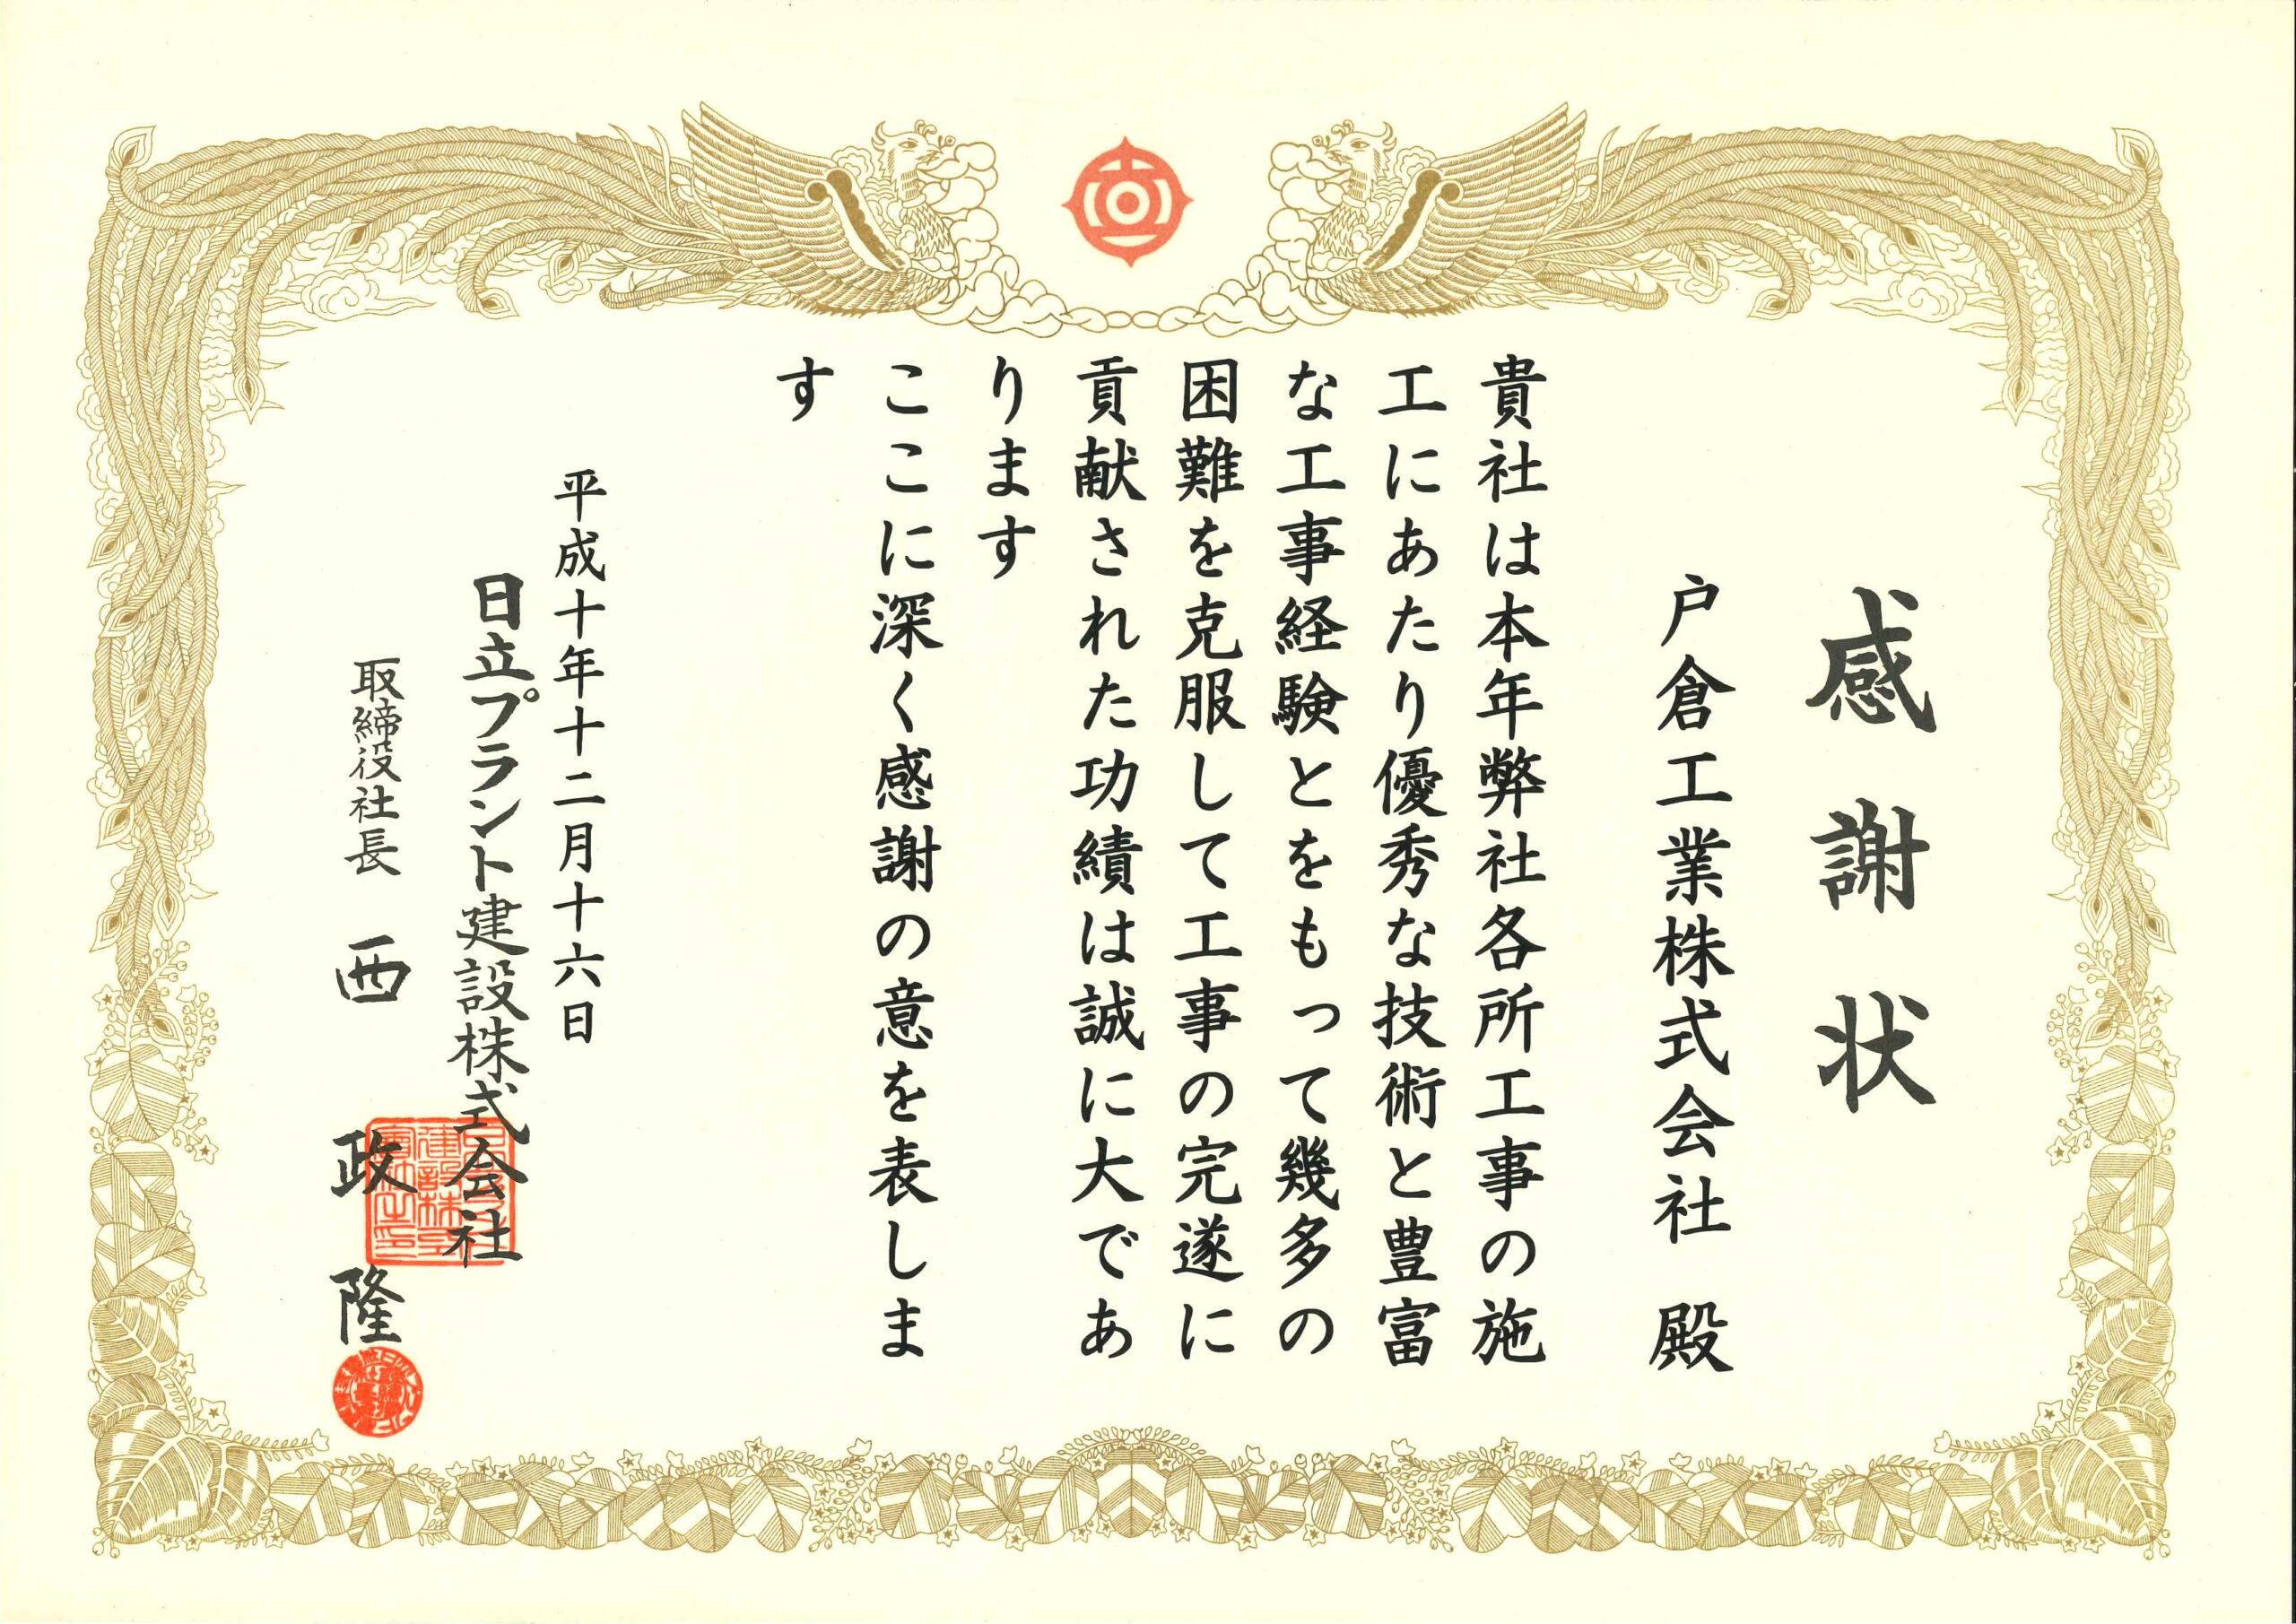 感謝状
戸倉工業株式会社 殿
貴社は本年弊社各所工事の施
工にあたり優秀な技術と豊富
な工事経験とをもって幾多の
困難を克服して工事の完遂に
貢献された功績は誠に大であ
ります
ここに深く感謝の意を表しま
す
平成十年十二月十六日
日立プラント建設株式会社
取締役社長 西 政隆